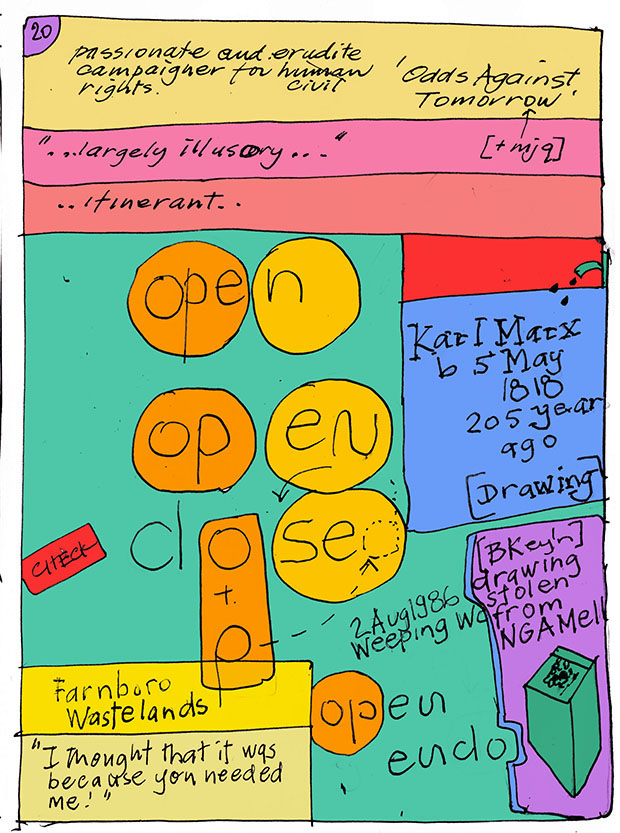 20
passionate and erudite
campaigner for human
civil
rights.
'Odds Against
Tomorrow'
"...largely illusory..."
[+mjq]
..itinerant..
open
open
close
+
p
CHECK
Karl Marx
b 5 May
1818
205 year
ago
[Drawing]
[BKey'n]
drawing
stolen
from
NGAMell
2 Aug 1986
Weeping Wo
Farnboro
Wastelands
"I thought that it was
because you needed
me!"
open
endo